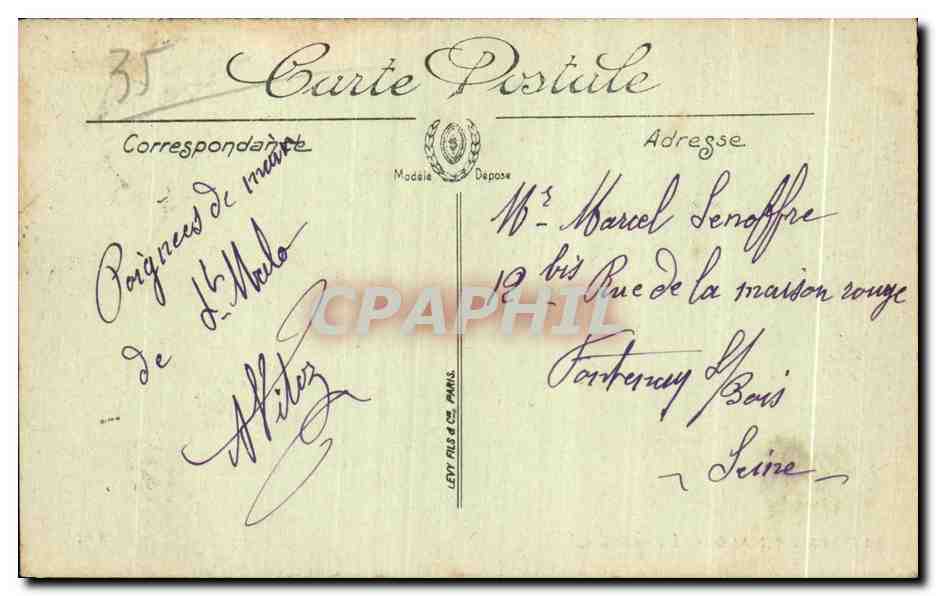 35
Carte Postale
Correspondance
Adresse
Modèle Déposé
Poignees de main
de St. Malo
Mr. Marcel Senoffre
12 bis Rue de la maison rouge
Fontenay S/Bois
Seine
LEVY FILS & Cie, PARIS.
CPAPHIL